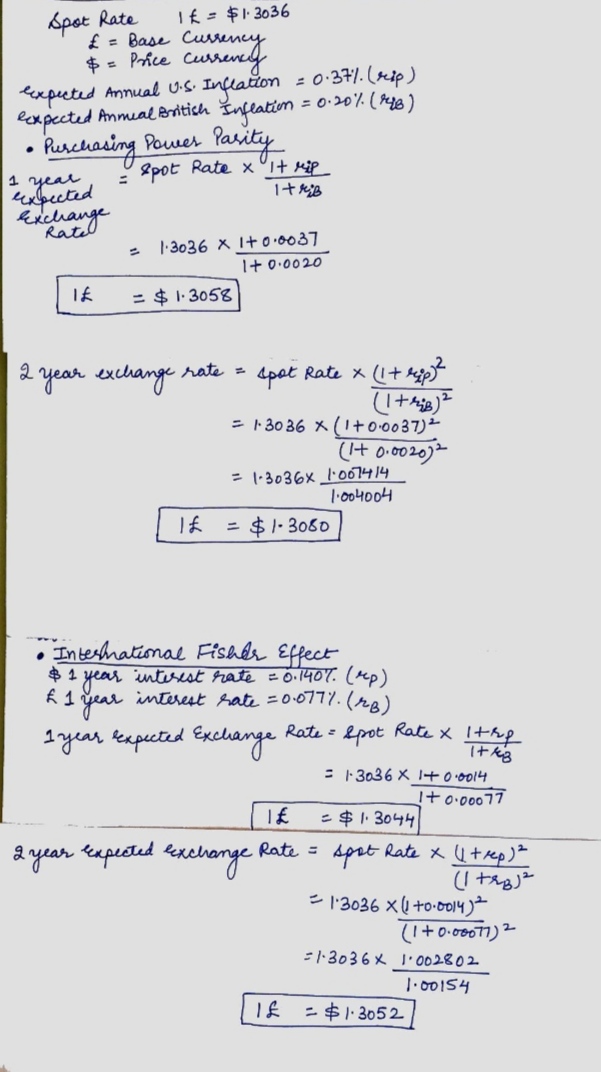 Spot Rate 1£ = $1.3036
£ = Base Currency
$ = Price Currency
Expected Annual U.S. Inflation = 0.37%. (rip)
Expected Annual British Inflation = 0.20%. (riB)
• Purchasing Power Parity
1 year Expected Exchange Rate = Spot Rate x 1+ rip / 1+ riB
= 1.3036 x 1+0.0037 / 1+ 0.0020
1£ = $ 1.3058
2 year exchange rate = Spot Rate x (1+ rip)² / (1+ riB)²
= 1.3036 x (1+0.0037)² / (1+ 0.0020)²
= 1.3036x 1.007414 / 1.004004
1£ = $ 1.3080
• International Fisher Effect
$ 1 year interest rate = 0.140%. (rp)
£ 1 year interest rate = 0.077%. (rB)
1 year Expected Exchange Rate = Spot Rate x 1+rp / 1+rB
= 1.3036 x 1+ 0.0014 / 1+ 0.00077
1£ = $ 1.3044
2 year Expected Exchange Rate = Spot Rate x (1+rp)² / (1+rB)²
= 1.3036 x (1+0.0014)² / (1+0.00077)²
=1.3036x 1.002802 / 1.00154
1£ = $1.3052